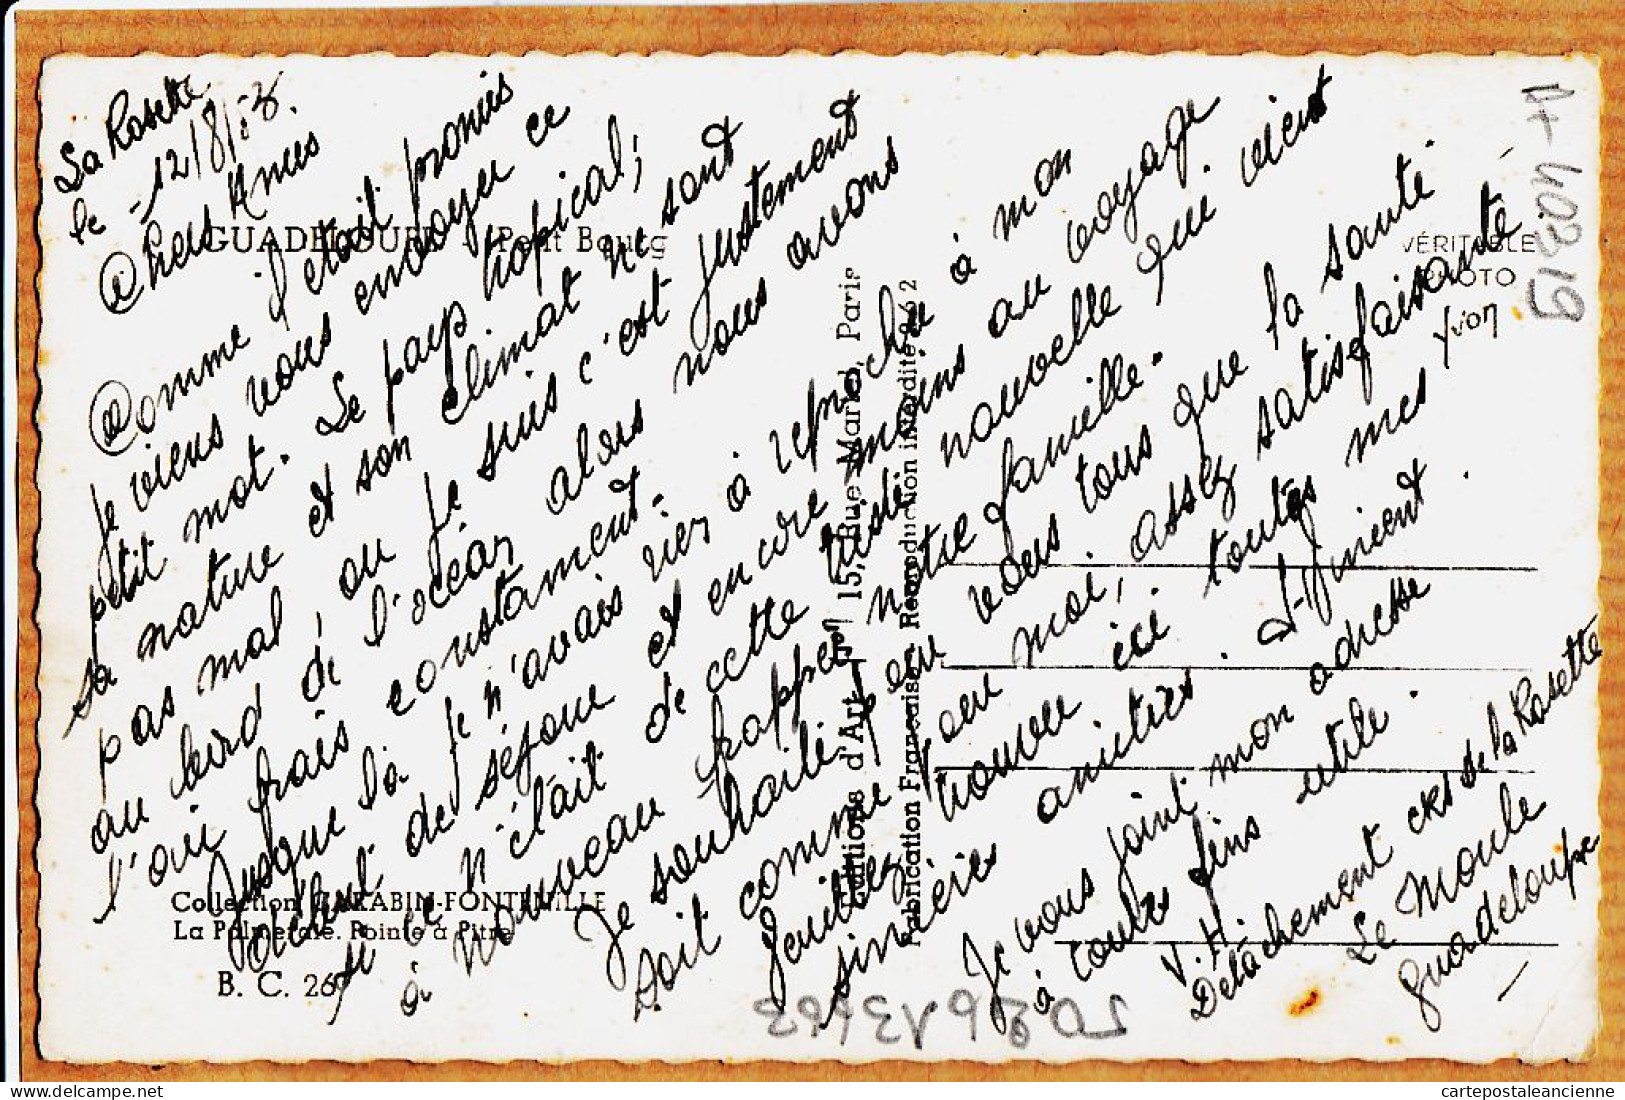 La Rosette
le 12/8/53
Chers Amis
Comme il était promis
je viens vous envoyer ce
petit mot. Le pays tropical,
sa nature et son climat ne sont
pas mal, ou je suis c'est justement
au bord de l'océan alors nous avons
l'air frais constament.
Jusque là je n'avais rien à reproché à mon
début de séjour et encore moins au voyage
si ce n'était de cette triste nouvelle qui vient
à nouveau frapper notre famille.
Je souhaite pour vous tous que la santé
soit comme pour moi, assez satisfaisante.
Veuillez trouver ici toutes mes
sincères amitiés.
Je vous joint mon adresse
à toutes fins utile.
V. H.
Détachement CRS de la Rosette
Le Moule
Guadeloupe
GUADELOUPE - Petit Bourg
VÉRITABLE
PHOTO
Yvon
Collection CARABIN-FONTENILLE
La Palmeraie. Pointe à Pitre
B. C. 26
Editions d'Art Yvon 15, Rue Martel, Paris
Fabrication Française. Reproduction interdite 862
cartepostaleancienne